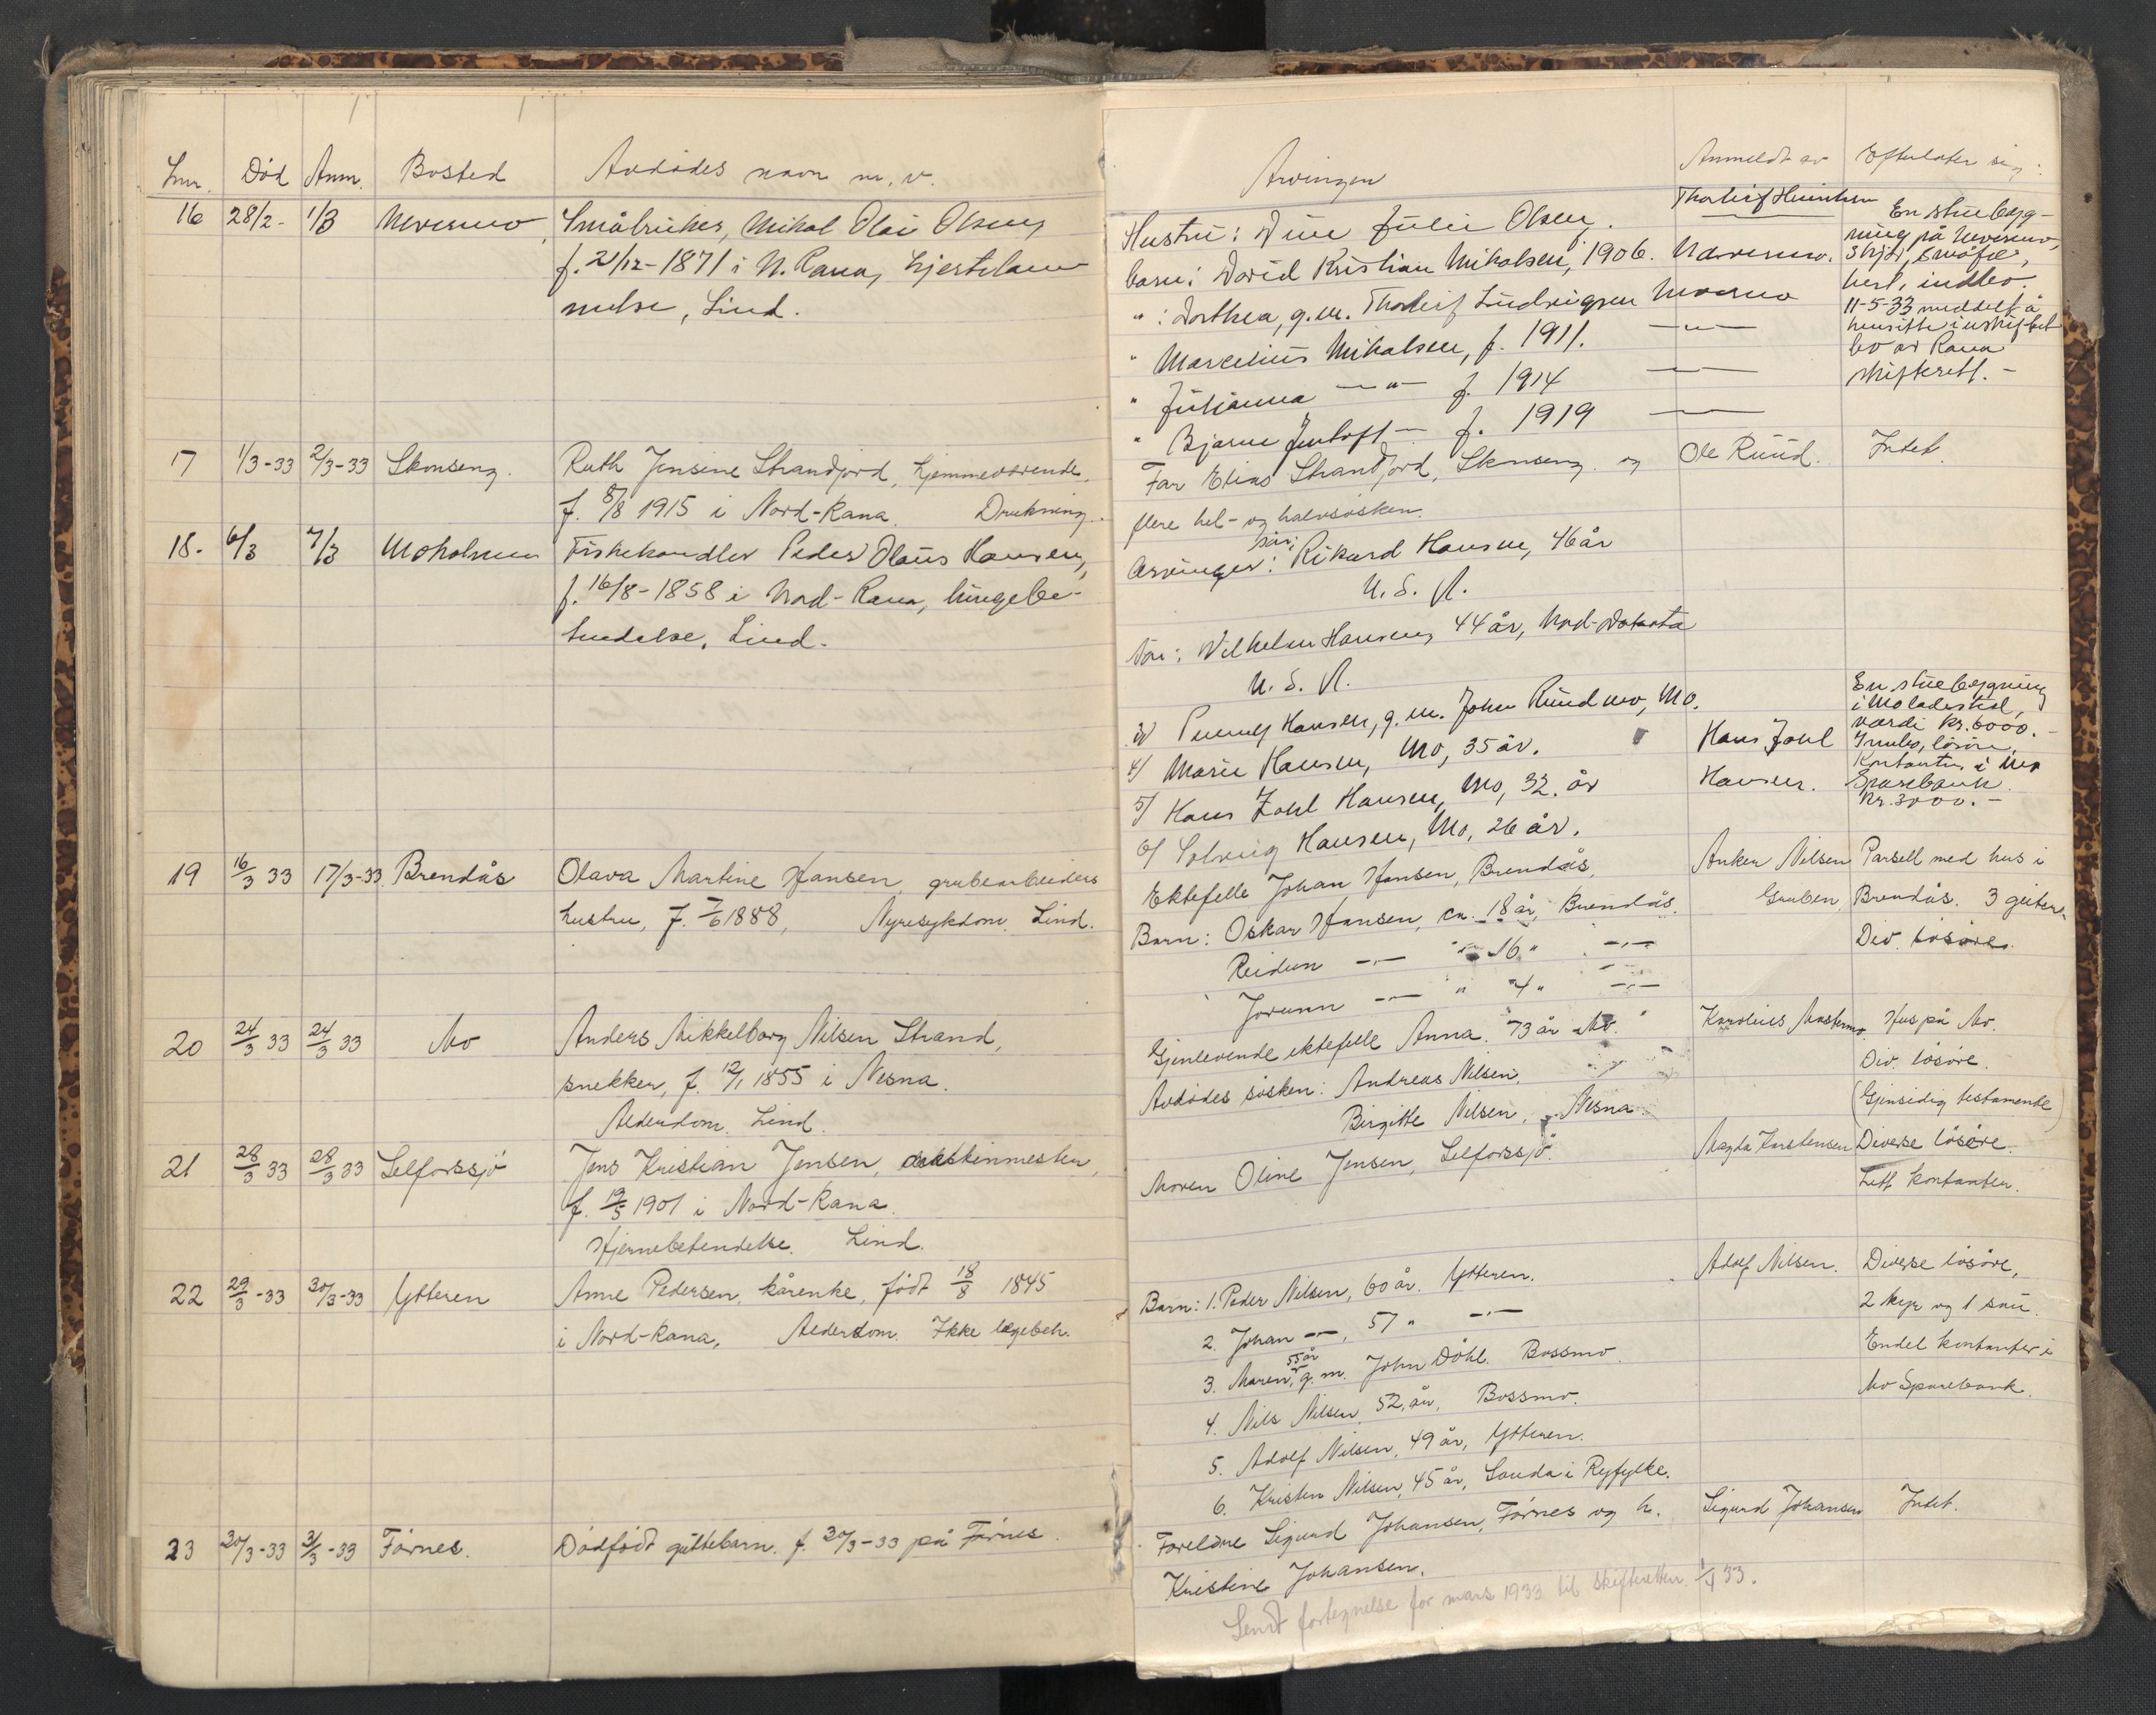 Lnr. Död Anm. Bosted Avdödes navn m. v.
16 28/2- 1/3 Nevernes, Småbruker, Mikal Olai Olsen,
f. 21/12-1871 i N. Rana, hjertelam
melse, Lind.
17 1/3-33 2/3-33 Skonseng. Ruth Jensine Strandjord, hjemmeværende,
f. 5/8 1915 i Nord-Rana. Drukning.
18. 6/3 7/3 Moholmen Fiskehandler Peder Olaus Hansen,
f. 16/8-1858 i Nord-Rana, lungebe-
tendelse. Lind.
19 16/3 33 17/3-33 Brendås Olava Martine Hansen, grubearbeiders
hustru, f. 7/6 1888, Nyresykdom. Lind.
20 24/3 33 24/3 33 Mo Anders Mikkelborg Nilsen Strand,
snekker, f. 12/1 1855 i Nesna.
Alderdom. Lind.
21 28/3 33 28/3 33 Selforssjö Jens Kristian Jensen,
f. 19/5 1901 i Nord-Rana.
Hjernebetendelse. Lind.
22 29/3-33 30/3-33 Ytteren Anne Pedersen, kårenke, født 18/8 1845
i Nord-Rana, Alderdom. Ikke legebeh.
23 30/3-33 31/3-33 Førnes. Dødfødt guttebarn. f. 30/3-33 på Førnes.
Arvinger Anmeldt av Efterlater sig:
Hustru: Julie Olsen.
barn: David Kristian Mikalsen, 1906.
" : Dorthea, g.m. Thorleif Ludvigsen
" Marcelius Mikalsen, f. 1911. —"—
" Julianna —"— f. 1914 ——
" Bjarne Jentoft — f. 1919 ——
Thorleif
En stuebyg-
ning på
småfe,
hest, indbo.
11-5-33 meddelt å
hensitte i uskiftet
bo av Rana
skifterett. -
Far Elias Strandjord, Skonseng og Ole Ruud. Intet.
flere hel- og halvsösken.
Arvinger: sön: Rikard Hansen, 46 år
U. S. A.
sön: Vilhelm Hansen, 44 år, Nord-Dakota
U. S. A.
3/ Hansen, g. m. John Ruudmo, Mo.
4/ Marie Hansen, Mo, 35 år.
5/ Hans Zahl Hansen, Mo, 32. år
6/ Solveig Hansen, Mo, 26 år.
Hans Zahl
Hansen.
En stuebygning
i Moladestrd,
værdi kr. 6000. -
Innbo, lösöre,
Kontanter i Mo
Sparebank.
Kr. 3000. -
Ektefelle Johan Hansen, Brendås, Anker Nilsen Parsell med hus i
Barn: Oskar Hansen, ca. 18 år, Brendås. Gruben, Brendås. 3 geiter.
Reidun —"— " 16 " —"— Div. lösöre.
Jorunn —"— " 4 " —"—
Gjenlevende ektefelle Anna. 73 år Mo. Hus på Mo.
Avdödes sösken: Andreas Nilsen, Div. lösöre.
Birgitte Nilsen, Nesna (Gjensidig testamente)
Moren Oline Jensen, Selforssjö. Magda Karstensen Diverse lösöre.
Litt kontanter.
Barn: 1. Peder Nilsen, 60 år. Ytteren. Adolf Nilsen. Diverse lösöre,
2. Johan —"—, 57 " —"— 2 kyr og 1 sau.
3. Maren, 55 år g. m. John Dåhl. Bossmo. Endel kontanter i
4. Nils Nilsen, 52 år, Bossmo. Mo Sparebank.
5. Adolf Nilsen, 49 år, Ytteren.
6. Kristen Nilsen, 45 år, Sauda i Ryfylke.
Foreldre Sigurd Johansen, Førnes og h. Sigurd Johansen Intet.
Kristine Johansen.
Sendt fortegnelse for mars 1933 til skifteretten 1/4 33.